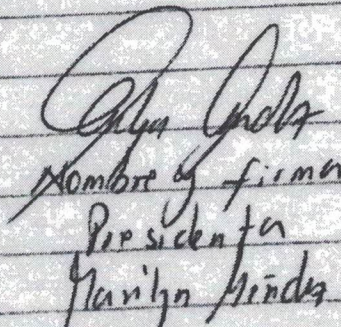 Nombre y firma
Presidenta
Marilyn Méndez